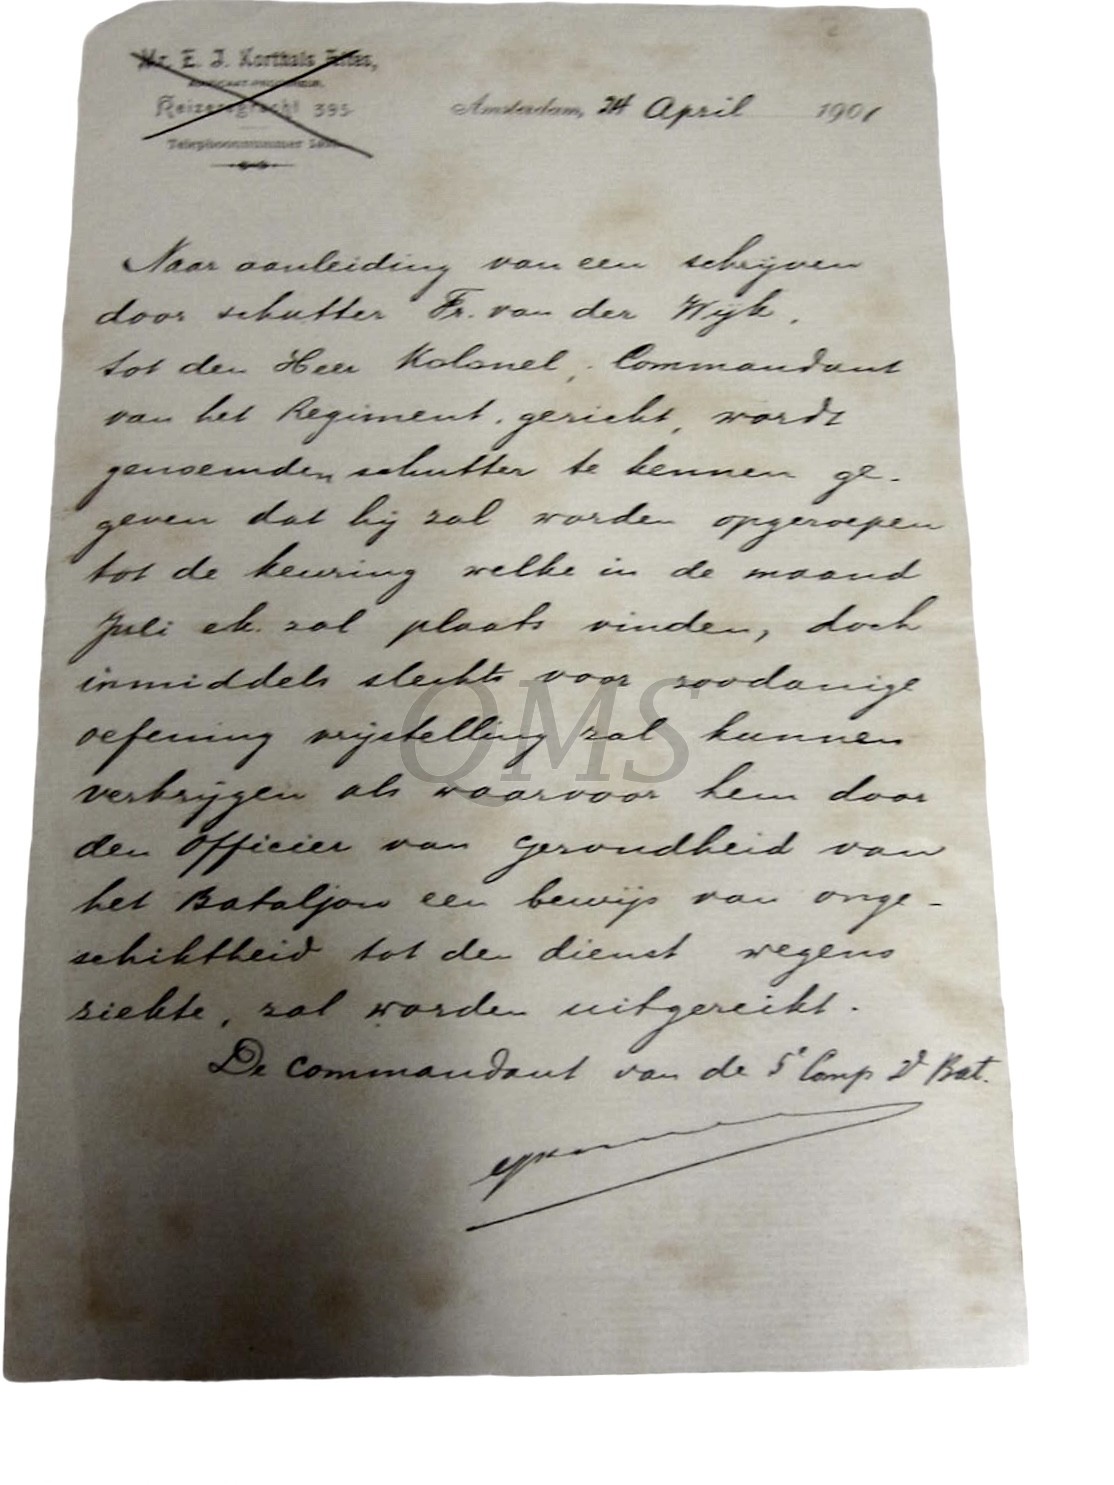 Mr. E. J. Korthals Altes,
ADVOCAAT-PROCUREUR,
Keizersgracht 395
Telephoonnummer
Amsterdam, 24 April 1901
Naar aanleiding van een schrijven
door schutter Fr. van der Wijk.
tot den Heer Kolonel, Commandant
van het Regiment. gericht, wordt
genoemden schutter te kennen ge-
geven dat hij zal worden opgeroepen
tot de keuring welke in de maand
Juli ek. zal plaats vinden, doch
inmiddels slechts voor zoodanige
oefening vrijstelling zal kunnen
verkrijgen als waarvoor hem door
den Officier van Gezondheid van
het Bataljon een bewijs van onge-
schiktheid tot den dienst wegens
ziekte, zal worden uitgereikt.
De Commandant van de 5e Comp 2d Bat.
QMS